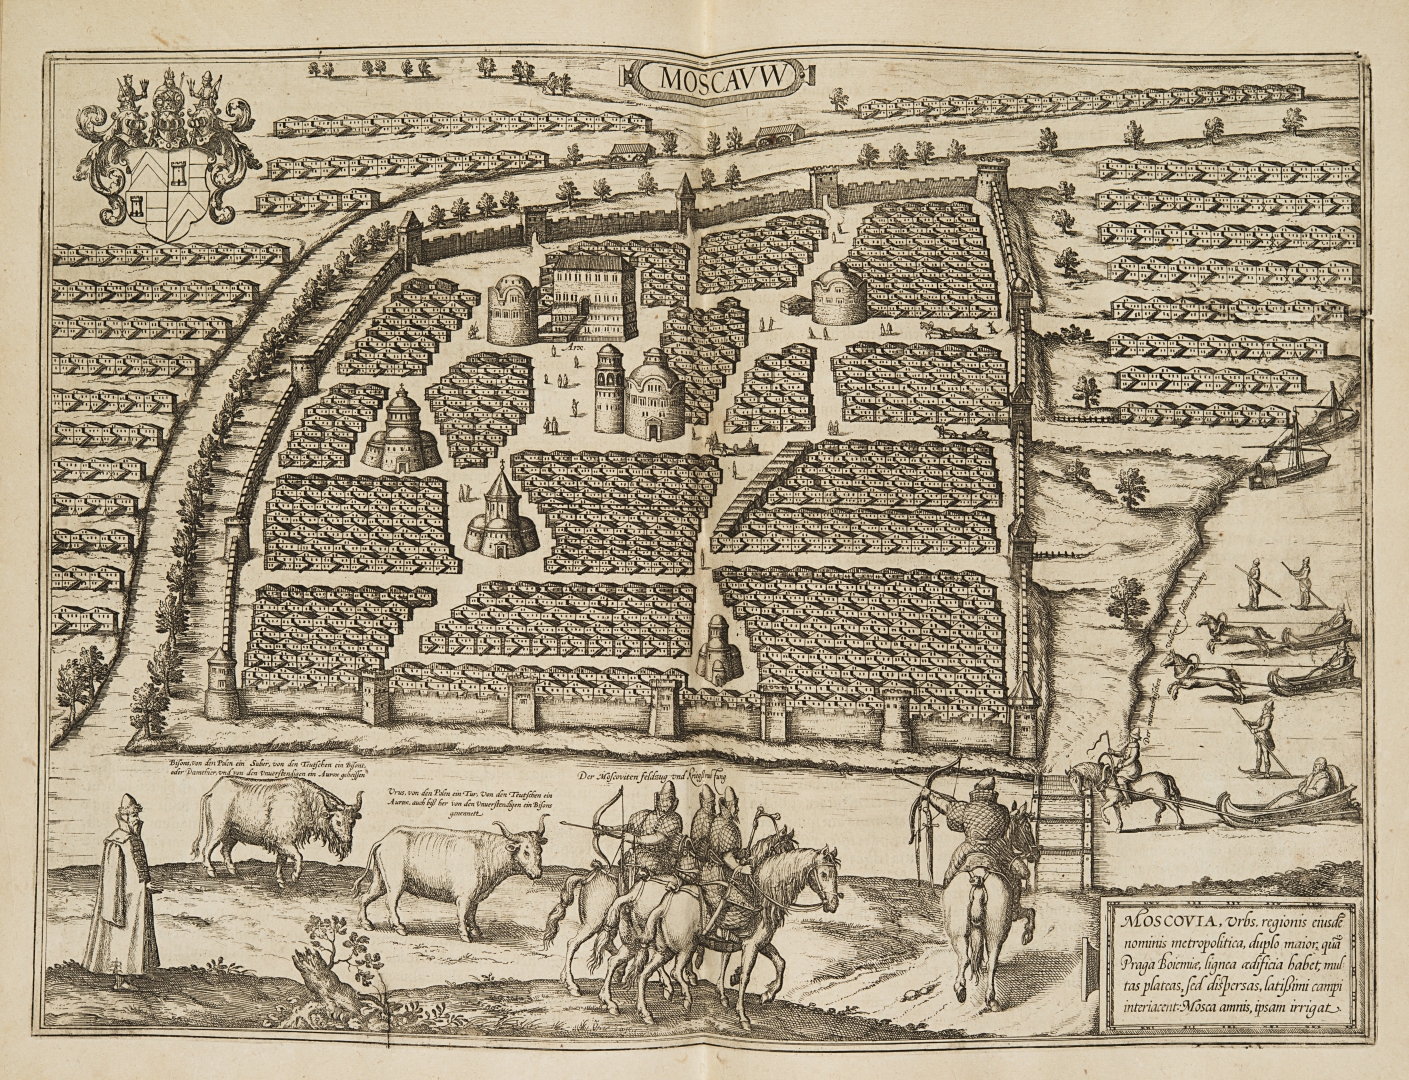 MOSCAVW
Arx.
Bisons, von den Polen ein Suber, von den Teutschen ein Bisons,
oder Damthier, vnd von den Vnuerstendigen ein Auron geheissen
Vrus, von den Polen ein Tur, Von den Teutschen ein
Aurox, auch biß her von den Vnuerstendigen ein Bisons
genennett.
Der Moscoviten feldzug vnd
MOSCOVIA, Vrbs, regionis eiusdē
nominis metropolitica, duplo maior, quā
Praga Boiemiæ, lignea ædificia habet, mul
tas plateas, sed dispersas, latißimi campi
interiacent: Mosca amnis, ipsam irrigat.